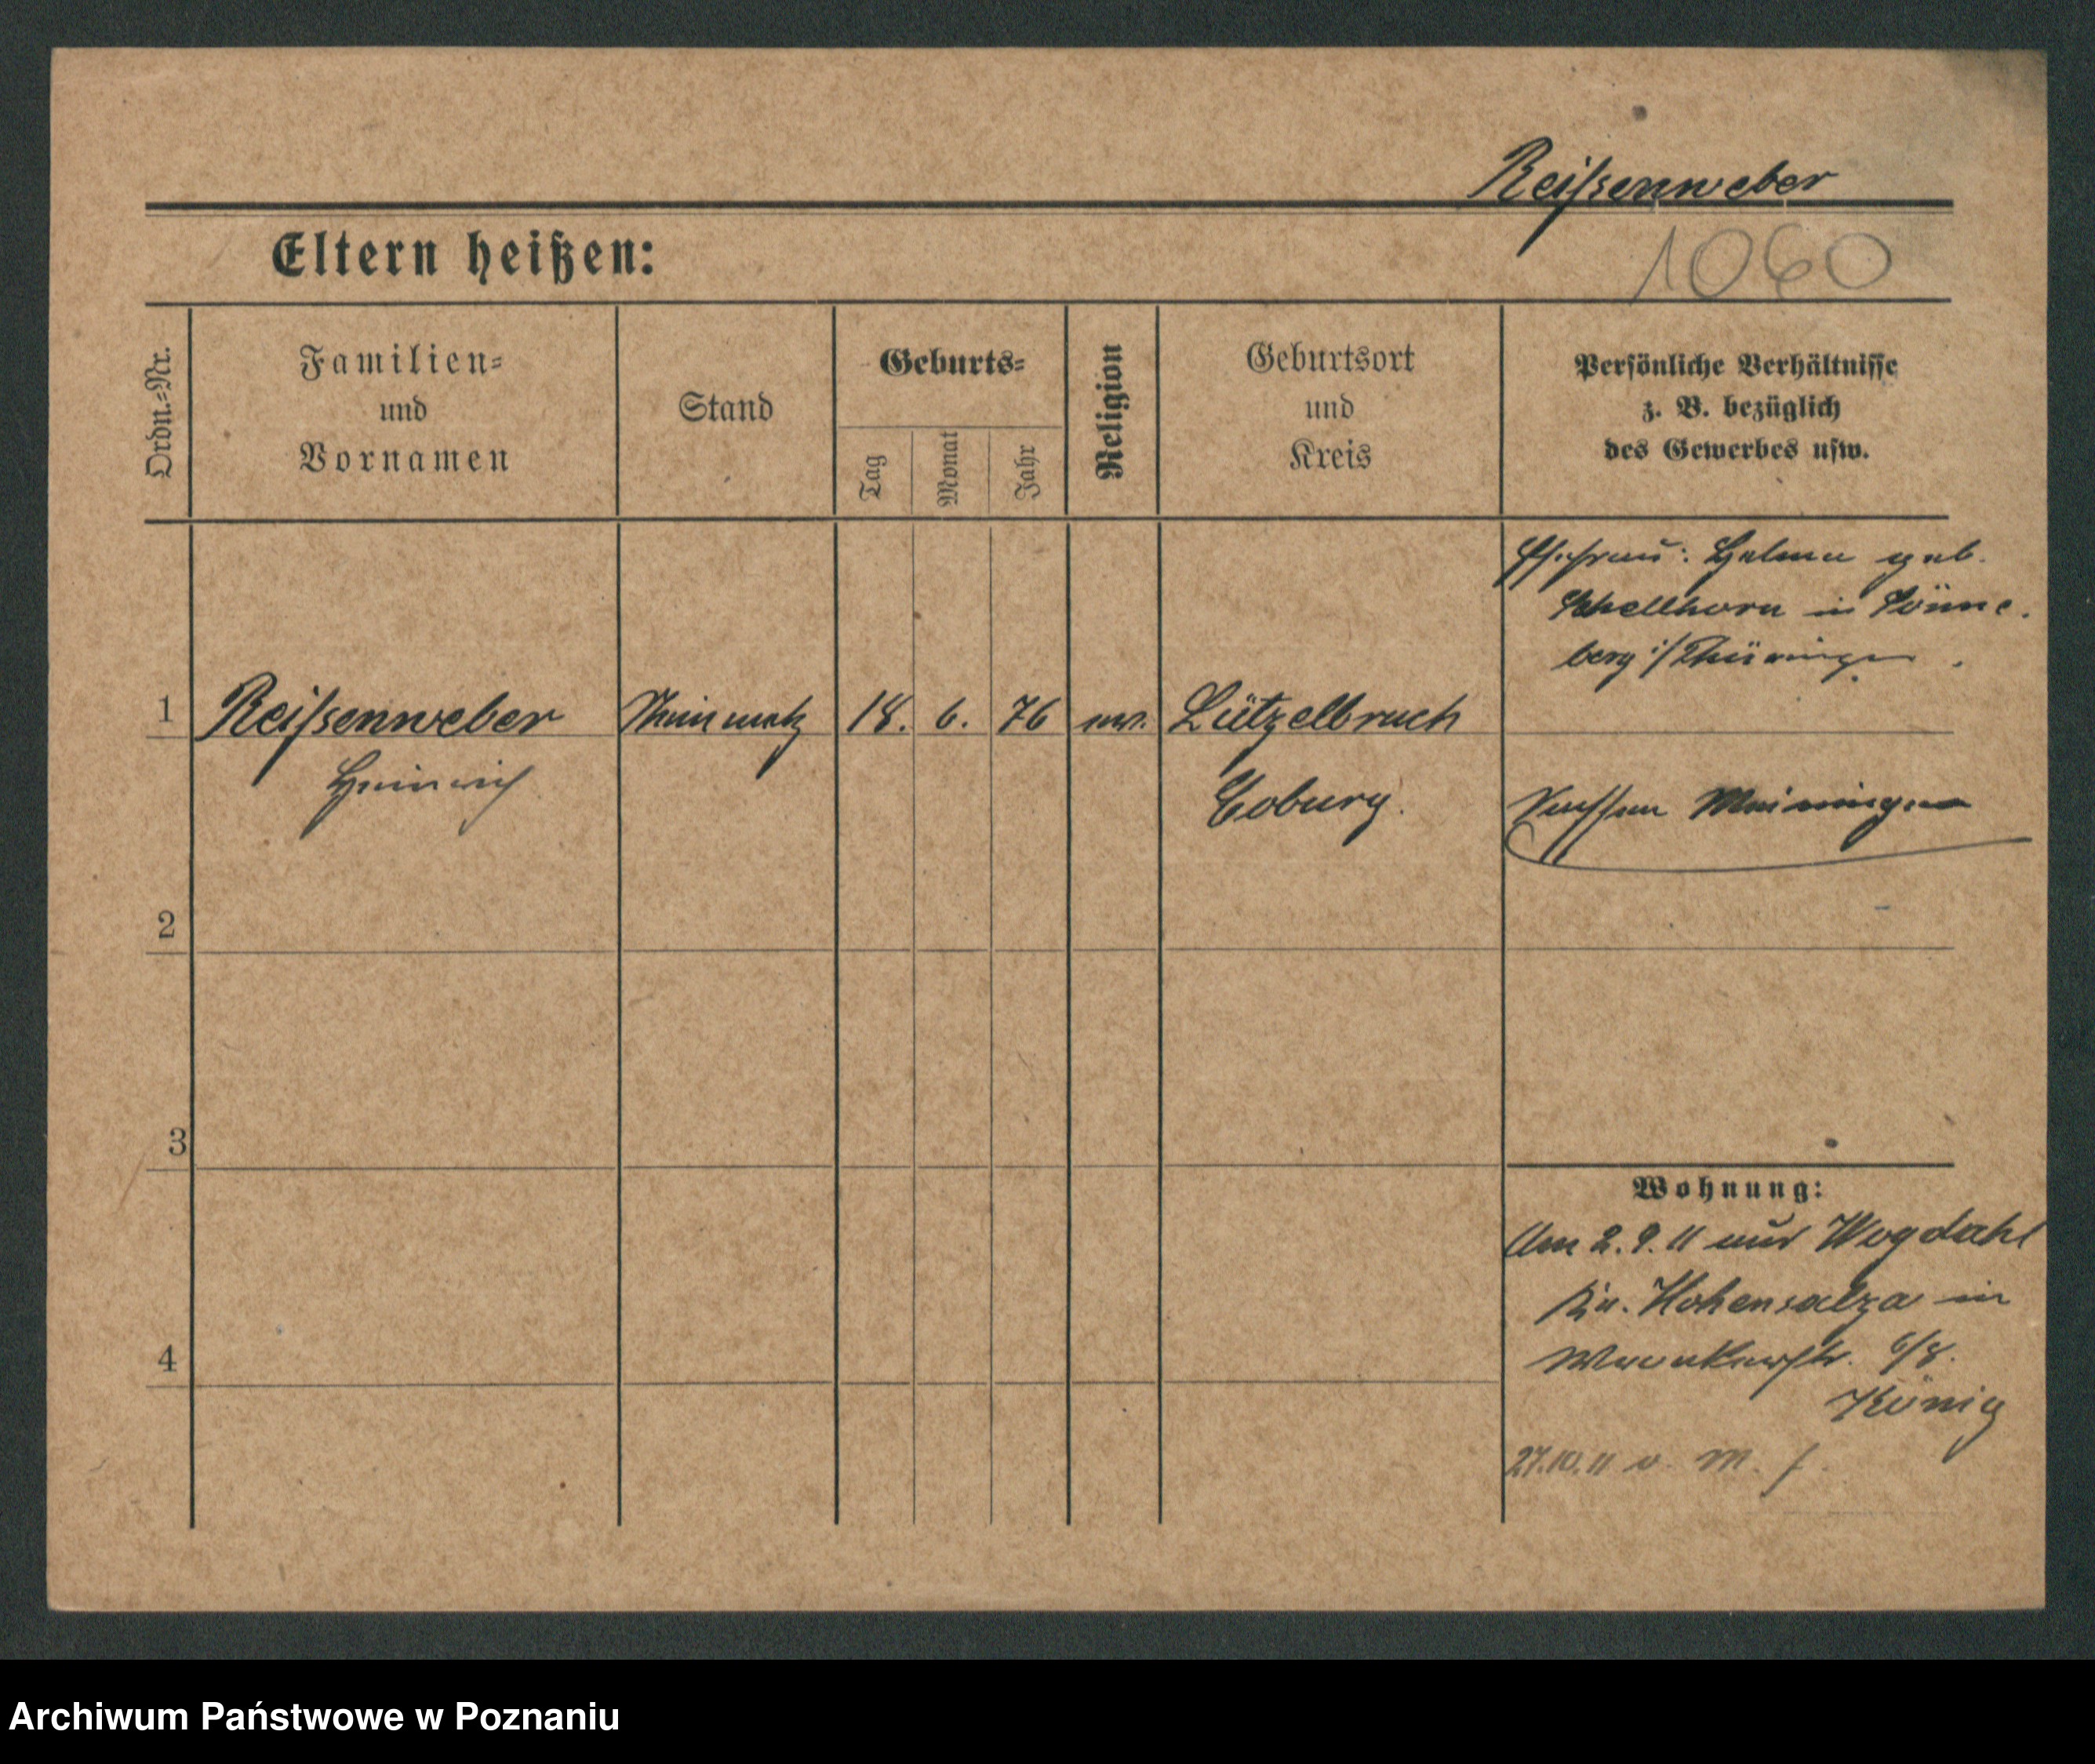 Reißenweber
Eltern heißen:
1060
Ordn.=Nr.
Familien=
und
Vornamen
Stand
Geburts=
Tag
Monat
Jahr
Religion
Geburtsort
und
Kreis
Persönliche Verhältnisse
z. B. bezüglich
des Gewerbes usw.
Ehefrau: Helma geb.
Schellhorn in Sonne-
berg i/Thüringen.
1 Reißenweber Steinmetz 18. 6. 76 ev. Lützelbruch
Heinrich Coburg.
Meiningen
2
3
Wohnung:
Am 2. 9. 11 aus Wogdahl
Kr. Hohensalza in
6/8.
4
König
27.10.11 v. M.
Archiwum Państwowe w Poznaniu